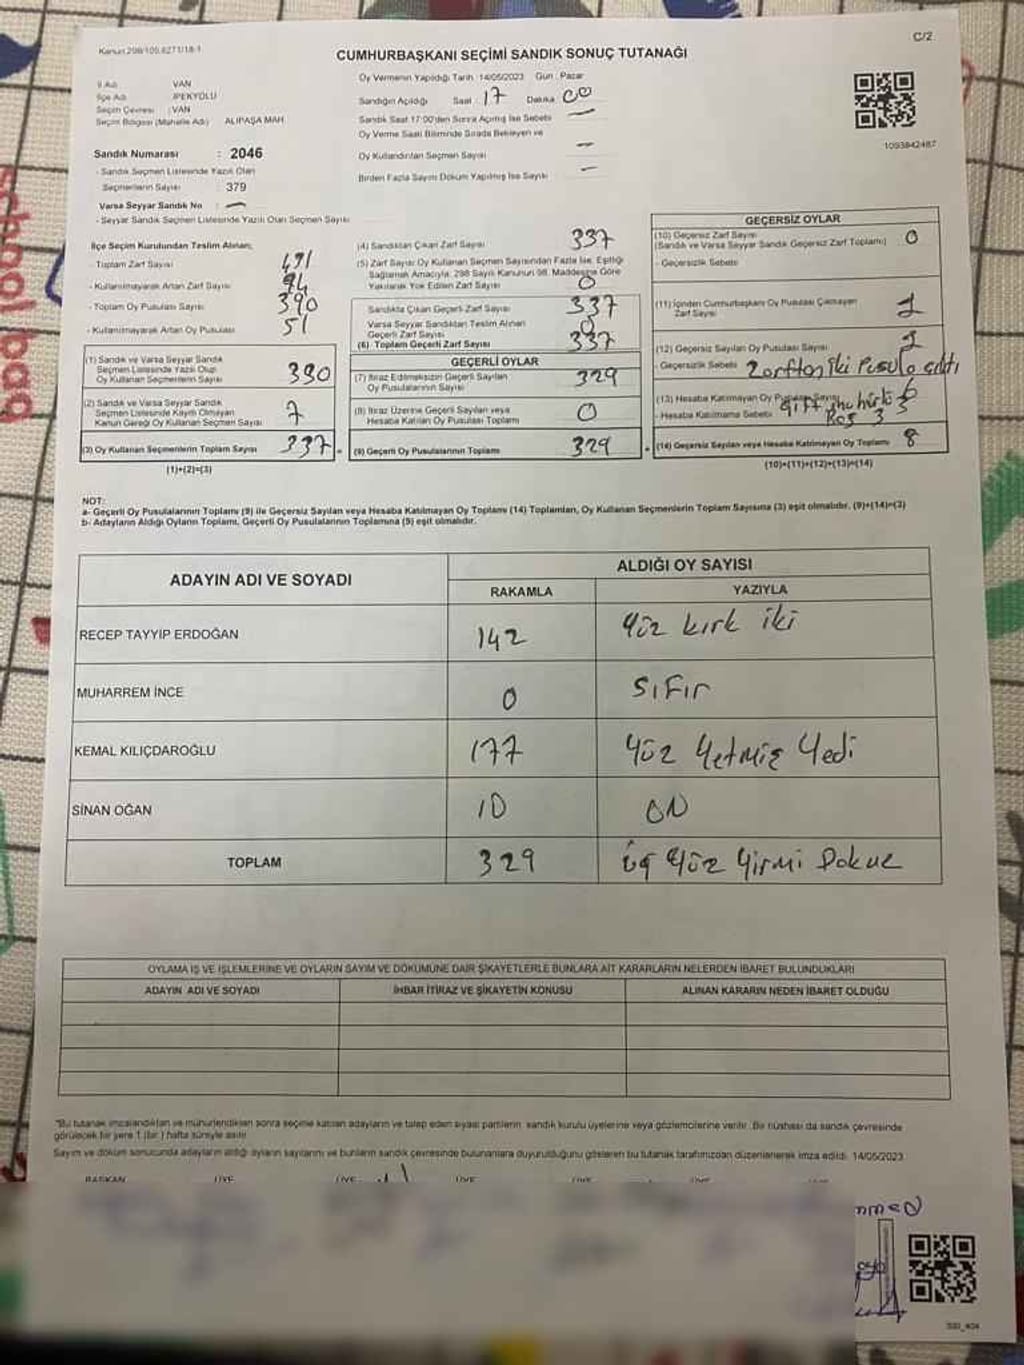 Kanun 298/109,6271/18-1
C/2
CUMHURBAŞKANI SEÇİMİ SANDIK SONUÇ TUTANAĞI
İl Adı : VAN
İlçe Adı : İPEKYOLU
Seçim Çevresi : VAN
Seçim Bölgesi (Mahalle Adı) : ALİPAŞA MAH.
Sandık Numarası : 2046
- Sandık Seçmen Listesinde Yazılı Olan
Seçmenlerin Sayısı : 379
Varsa Seyyar Sandık No : —
- Seyyar Sandık Seçmen Listesinde Yazılı Olan Seçmen Sayısı
Oy Vermenin Yapıldığı Tarih : 14/05/2023 Gün : Pazar
Sandığın Açıldığı Saat : 17 Dakika : 00
Sandık Saat 17:00'den Sonra Açılmış İse Sebebi —
Oy Verme Saati Bitiminde Sırada Bekleyen ve
Oy Kullandırılan Seçmen Sayısı —
Birden Fazla Sayım Döküm Yapılmış İse Sayısı —
1093842487
İlçe Seçim Kurulundan Teslim Alınan;
- Toplam Zarf Sayısı 431
- Kullanılmayarak Artan Zarf Sayısı 94
- Toplam Oy Pusulası Sayısı 390
- Kullanılmayarak Artan Oy Pusulası 51
(1) Sandık ve Varsa Seyyar Sandık
Seçmen Listesinde Yazılı Olup
Oy Kullanan Seçmenlerin Sayısı 330
(2) Sandık ve Varsa Seyyar Sandık
Seçmen Listesinde Kayıtlı Olmayan
Kanun Gereği Oy Kullanan Seçmen Sayısı 7
(3) Oy Kullanan Seçmenlerin Toplam Sayısı 337 =
(1)+(2)=(3)
(4) Sandıktan Çıkan Zarf Sayısı 337
(5) Zarf Sayısı Oy Kullanan Seçmen Sayısından Fazla İse, Eşitliği
Sağlamak Amacıyla; 298 Sayılı Kanunun 98. Maddesine Göre
Yakılarak Yok Edilen Zarf Sayısı 0
Sandıkta Çıkan Geçerli Zarf Sayısı 337
Varsa Seyyar Sandıktan Teslim Alınan
Geçerli Zarf Sayısı 0
(6) Toplam Geçerli Zarf Sayısı 337
GEÇERLİ OYLAR
(7) İtiraz Edilmeksizin Geçerli Sayılan
Oy Pusulalarının Sayısı 329
(8) İtiraz Üzerine Geçerli Sayılan veya
Hesaba Katılan Oy Pusulası Toplamı 0
(9) Geçerli Oy Pusulalarının Toplamı 329 +
GEÇERSİZ OYLAR
(10) Geçersiz Zarf Sayısı
(Sandık ve Varsa Seyyar Sandık Geçersiz Zarf Toplamı) 0
- Geçersizlik Sebebi
(11) İçinden Cumhurbaşkanı Oy Pusulası Çıkmayan
Zarf Sayısı
(12) Geçersiz Sayılan Oy Pusulası Sayısı
- Geçersizlik Sebebi Zarftan iki Pusula çıktı
(13) Hesaba Katılmayan Oy Pusulası Sayısı 6
- Hesaba Katılmama Sebebi Çift mühürlü 3
Boş 3
(14) Geçersiz Sayılan veya Hesaba Katılmayan Oy Toplamı 8
(10)+(11)+(12)+(13)=(14)
NOT:
a- Geçerli Oy Pusulalarının Toplamı (9) ile Geçersiz Sayılan veya Hesaba Katılmayan Oy Toplamı (14) Toplamları, Oy Kullanan Seçmenlerin Toplam Sayısına (3) eşit olmalıdır. (9)+(14)=(3)
b- Adayların Aldığı Oyların Toplamı, Geçerli Oy Pusulalarının Toplamına (9) eşit olmalıdır.
ADAYIN ADI VE SOYADI
ALDIĞI OY SAYISI
RAKAMLA YAZIYLA
RECEP TAYYİP ERDOĞAN 142 Yüz kırk iki
MUHARREM İNCE 0 Sıfır
KEMAL KILIÇDAROĞLU 177 Yüz Yetmiş Yedi
SİNAN OĞAN 10 ON
TOPLAM 329 üç Yüz Yirmi Dokuz
OYLAMA İŞ VE İŞLEMLERİNE VE OYLARIN SAYIM VE DÖKÜMÜNE DAİR ŞİKAYETLERLE BUNLARA AİT KARARLARIN NELERDEN İBARET BULUNDUKLARI
ADAYIN ADI VE SOYADI İHBAR İTİRAZ VE ŞİKAYETİN KONUSU ALINAN KARARIN NEDEN İBARET OLDUĞU
*Bu tutanak imzalandıktan ve mühürlendikten sonra seçime katılan adayların ve talep eden siyasi partilerin, sandık kurulu üyelerine veya gözlemcilerine verilir. Bir nüshası da sandık çevresinde
görülecek bir yere 1 (bir) hafta süreyle asılır.
Sayım ve döküm sonucunda adayların aldığı oyların sayılarını ve bunların sandık çevresinde bulunanlara duyurulduğunu gösteren bu tutanak tarafımızdan düzenlenerek imza edildi. 14/05/2023
BAŞKAN ÜYE ÜYE ÜYE ÜYE ÜYE ÜYE
school bag